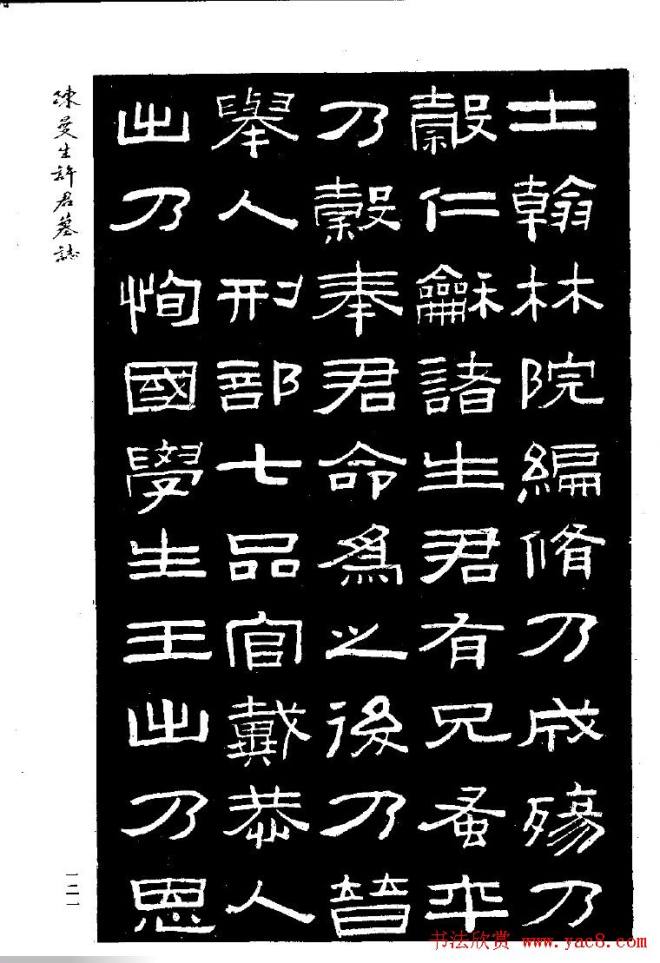 士翰林院編脩乃成殤乃
穀仁龢諸生君有兄蚤卒
乃穀奉君命爲之後乃晉
舉人刑部七品官戴恭人
出乃恂國學生王出乃恩
陳曼生許君墓誌
一二一
书法欣赏 www.yac8.com